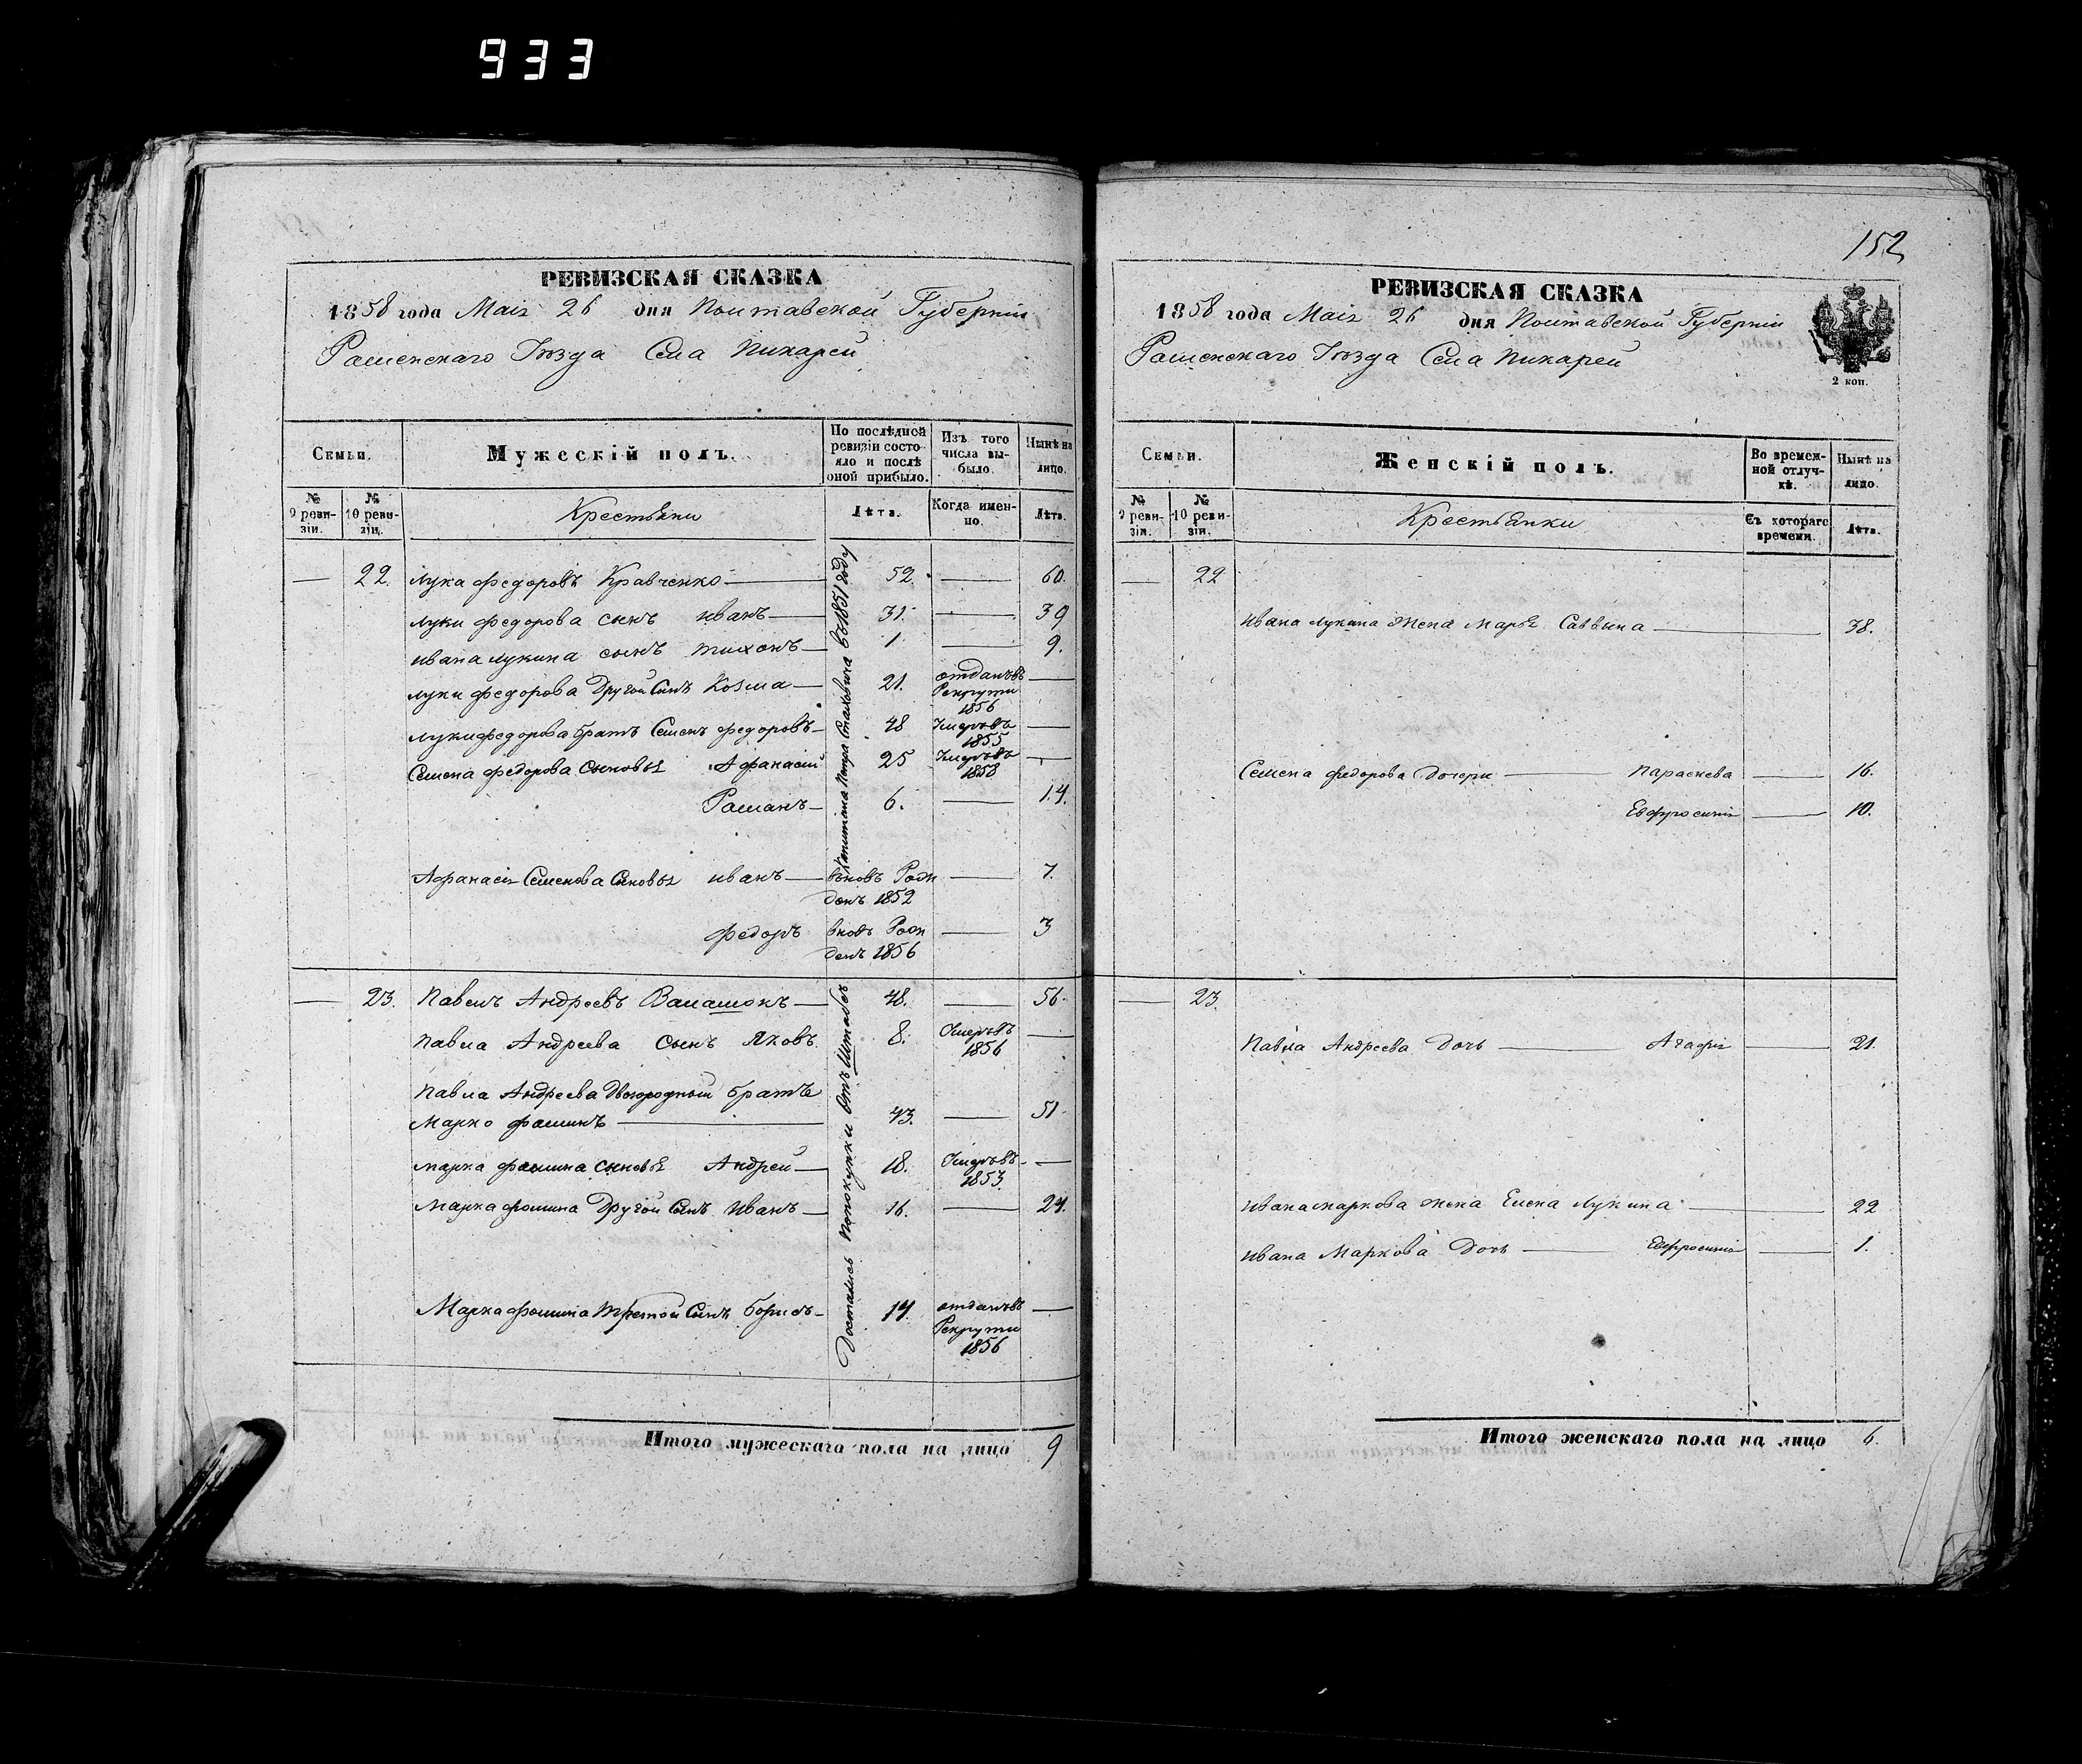 933
РЕВИЗСКАЯ СКАЗКА
1858 года Маія 26 дня Полтавской Губерніи
Роменскаго Уѣзда Села Пикарей
Семьи.
Мужескій полъ.
По послѣдней ревизіи состояло и послѣ оной прибыло.
Изъ того числа выбыло.
Нынѣ на лицо.
№ 9 ревизіи.
№ 10 ревизіи.
Крестьяни
Лѣта.
Когда именно.
Лѣта.
— 22. Лука Федоровъ Кравченко — 52. — 60.
Луки Федорова сынъ Иванъ — 31. — 39
Ивана Лукина сынъ Тихонъ — 1. — 9.
Луки Федорова Другой Сынъ Козма — 21. отданъ въ Рекруты 1856 —
Луки Федорова братъ Семенъ Федоровъ — 48 Умеръ въ 1855 —
Семена Федорова Сыновья Афанасій 25 Умеръ въ 1858 —
Романъ — 6. — 14.
Афанасія Семенова Сыновья Иванъ — вновь Рожденъ 1852 — 7.
Федоръ вновь Рожденъ 1856 — 3
— 23. Павелъ Андреевъ Валашокъ — 48. — 56.
Павла Андреева Сынъ Яковъ. 8. Умеръ въ 1856 —
Павла Андреева Двоюродный братъ
Марко Фоминъ — 43. — 51.
Марка Фомина сыновья Андрей — 18. Умеръ въ 1853. —
Марка Фомина Другой Сынъ Иванъ — 16. — 24.
Марка Фомина Третой Сынъ Борисъ — 14. отданъ въ Рекруты 1856 —
Достались по покупки Отъ Штабсъ
Капитана Петра Стаховича въ 1851 году
Итого мужескаго пола на лицо 9
152
РЕВИЗСКАЯ СКАЗКА
1858 года Маія 26 дня Полтавской Губерніи
Роменскаго Уѣзда Села Пикарей
2 коп.
Семьи.
Женскій полъ.
Во временной отлучкѣ.
Нынѣ на лицо.
№ 9 ревизіи.
№ 10 ревизіи.
Крестьянки
Съ котораго времени.
Лѣта.
— 22
Ивана Лукина Жена Марья Саввына — 38.
Семена Федорова Дочери — Параскева — 16.
Евфросинія — 10.
— 23.
Павла Андреева Дочь — Агафія — 21.
Ивана Маркова Жена Елена Лукина — 22
Ивана Маркова Дочь — Евфросинія — 1.
Итого женскаго пола на лицо 6.